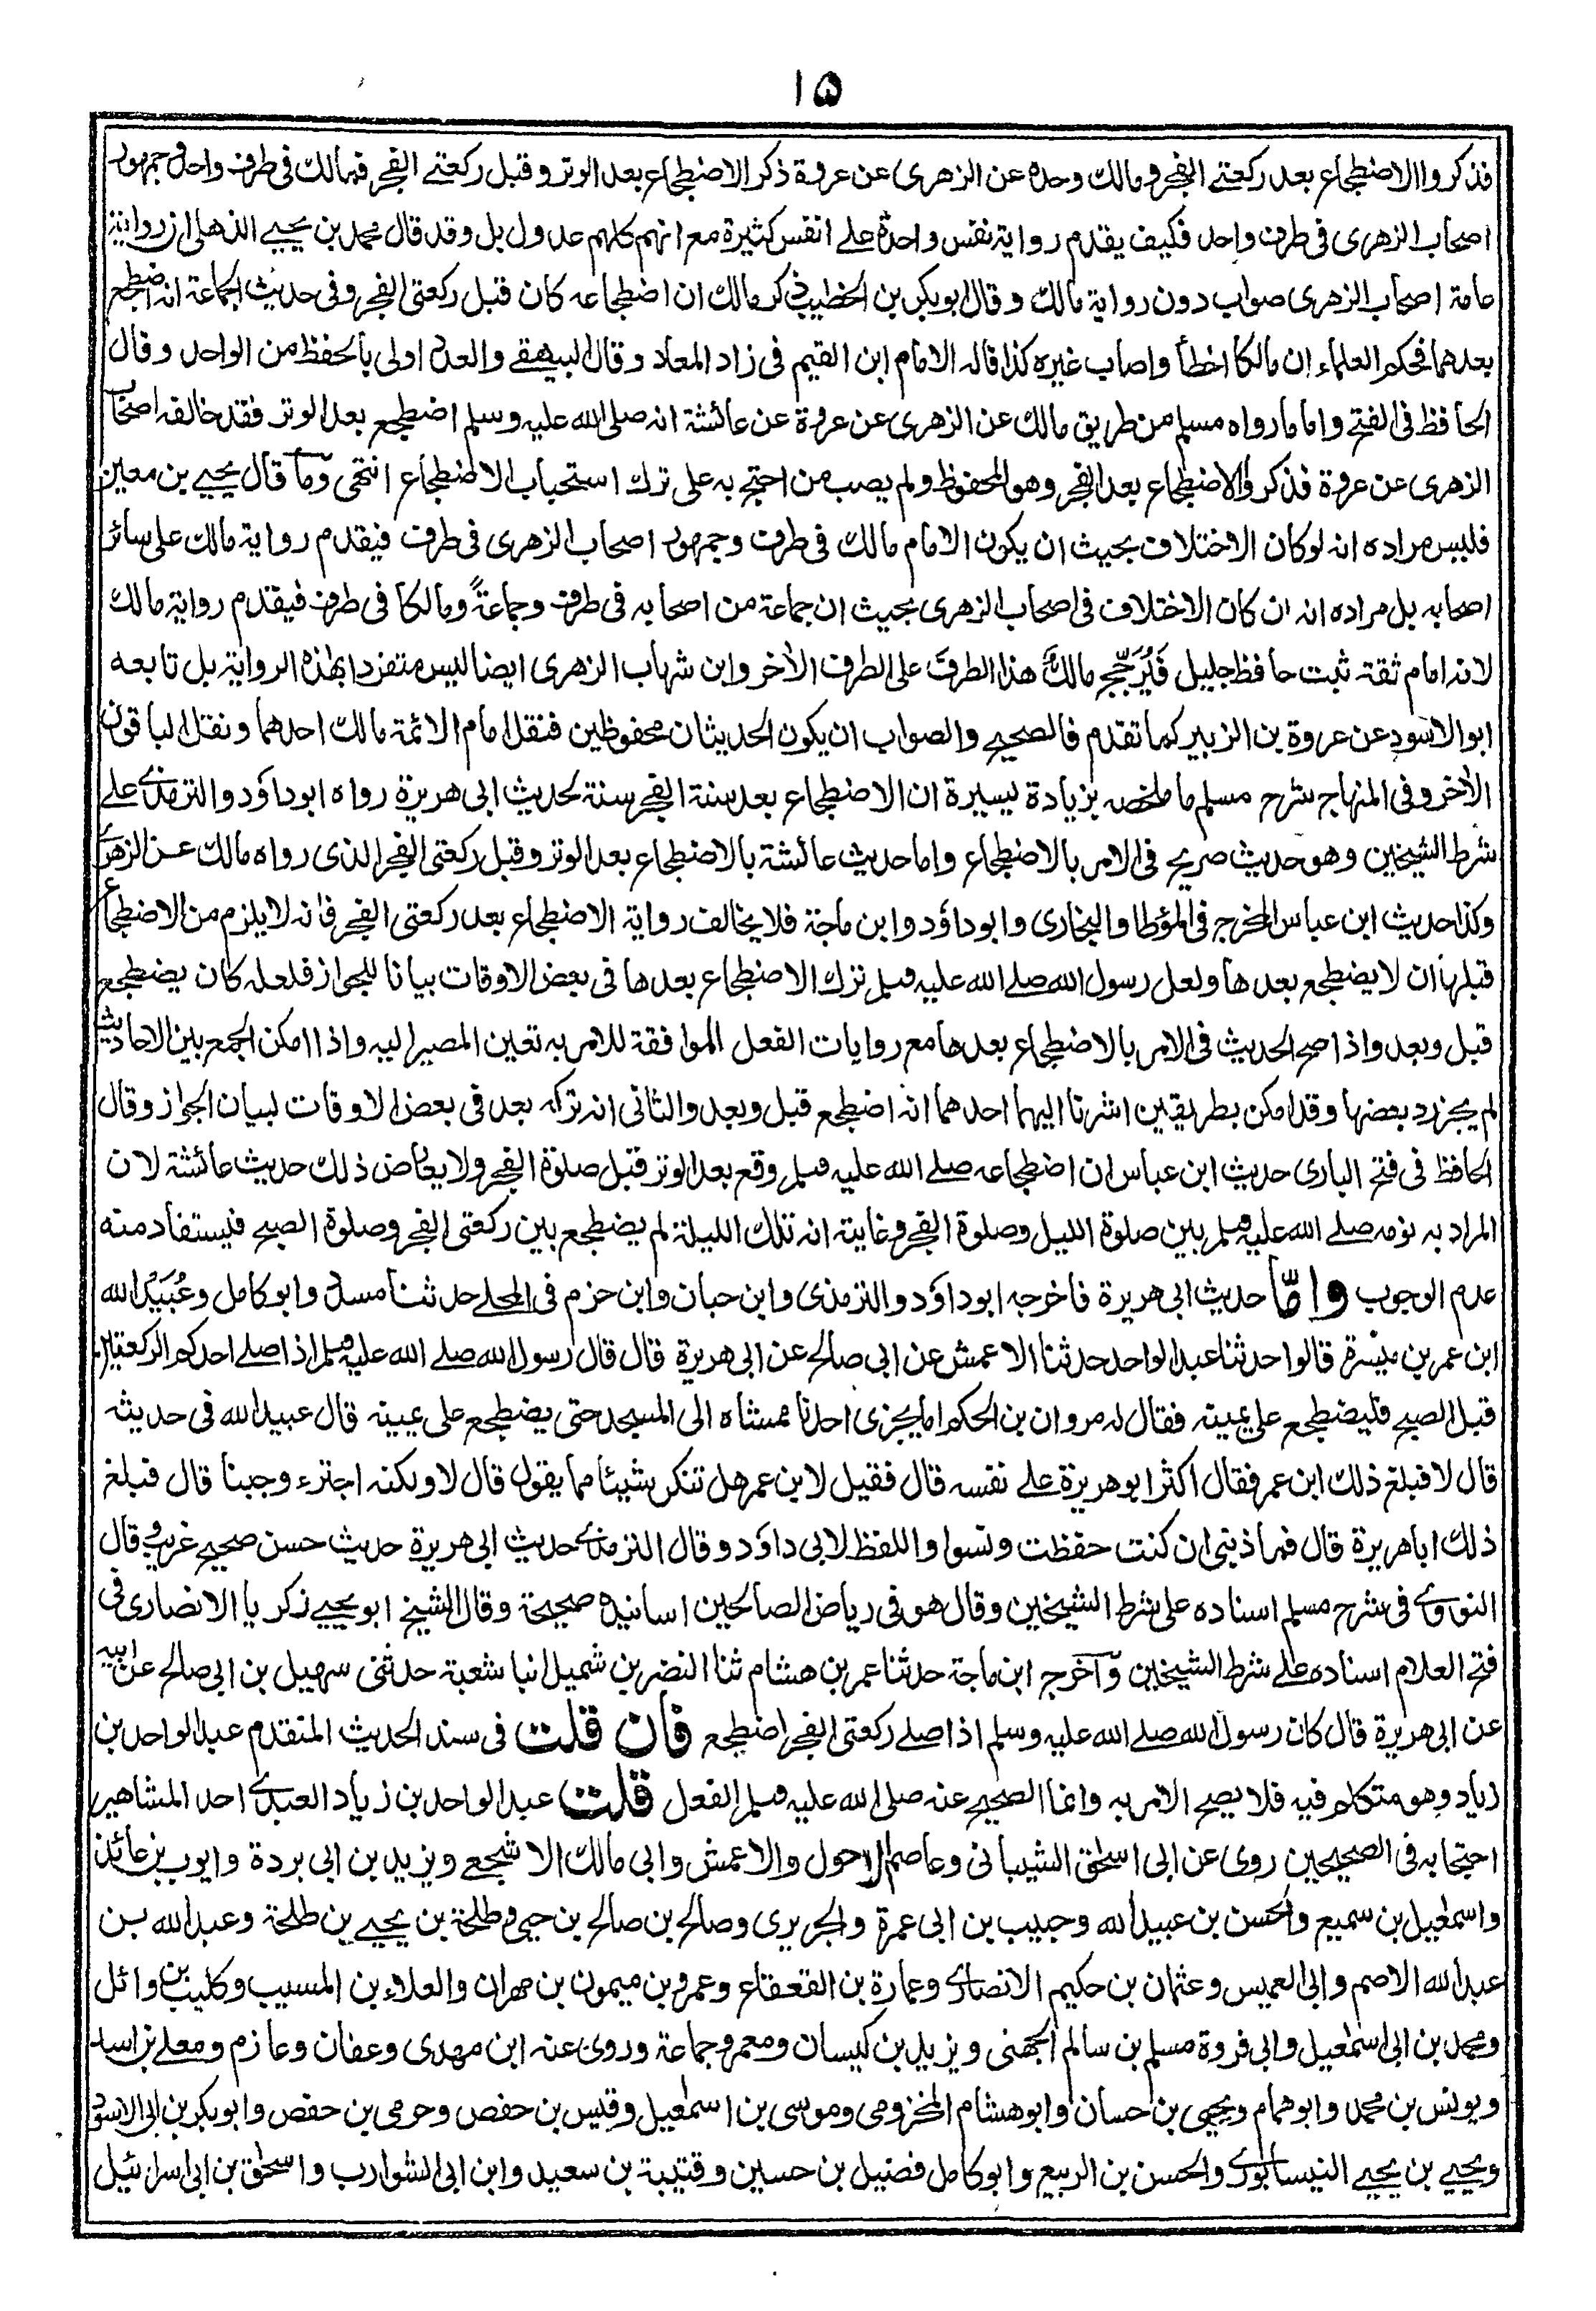 ١٥
فذكروا الاضطجاع بعد ركعتے الفجر ومالك وحده عن الزهرى عن عروة ذكر الاضطجاع بعد الوتر وقبل ركعتے الفجر فمالك فى طرف واحد وجمهور
اصحاب الزهرى فى طرف واحد فكيف يقدم رواية نفس واحدة علے انفس كثيرة مع انهم كلهم عدول بل وقد قال محمد بن يحيے الذهلى ان رواية
عامة اصحاب الزهرى صواب دون رواية مالك وقال ابوبكر بن الخطيب ذكر مالك ان اضطجاعه كان قبل ركعتى الفجر وفى حديث الجماعة انه اضطجع
بعدهما فحكم العلماء ان مالكا اخطأ واصاب غيره كذا قاله الامام ابن القيم فى زاد المعاد وقال البيهقے والعدد اولى بالحفظ من الواحد وقال
الحافظ فى الفتح واما ما رواه مسلم من طريق مالك عن الزهرى عن عروة عن عائشة انه صلى الله عليه وسلم اضطجع بعد الوتر فقد خالفه اصحاب
الزهرى عن عروة فذكروا الاضطجاع بعد الفجر وهو المحفوظ ولم يصب من احتج به على ترك استحباب الاضطجاع انتهى وما قال يحيے بن معين
فليس مراده انه لوكان الاختلاف بحيث ان يكون الامام مالك فى طرف وجمهور اصحاب الزهرى فى طرف فيقدم رواية مالك على سائر
اصحابه بل مراده انه ان كان الاختلاف فى اصحاب الزهرى بحيث ان جماعة من اصحابه فى طرف وجماعةً ومالكا فى طرف فيقدم رواية مالك
لانه امام ثقة ثبت حافظ جليل فَيُرَجِّح مالكٌ هذا الطرفَ على الطرف الأخر وابن شهاب الزهرى ايضا ليس متفردا بهذه الرواية بل تابعه
ابو الاسود عن عروة بن الزبير كما تقدم فالصحيح والصواب ان يكون الحديثان محفوظين فنقل امام الائمة مالك احدهما ونقل الباقون
الأخر وفى المنهاج شرح مسلم ما ملخصه بزيادة يسيرة ان الاضطجاع بعد سنة الفجر سنة لحديث ابى هريرة رواه ابوداؤد والترمذے علے
شرط الشيخين وهو حديث صريح فى الامر بالاضطجاع واما حديث عائشة بالاضطجاع بعد الوتر وقبل ركعتى الفجر الذى رواه مالك عن الزهرى
وكذا حديث ابن عباس المخرج فى المؤطا والبخارى وابوداؤد وابن ماجة فلا يخالف رواية الاضطجاع بعد ركعتى الفجر فانه لا يلزم من الاضطجاع
قبلها ان لا يضطجع بعدها ولعل رسول الله صلے الله عليه وسلم ترك الاضطجاع بعدها فى بعض الاوقات بيانا للجواز فلعله كان يضطجع
قبل وبعد واذا صح الحديث فى الامر بالاضطجاع بعدها مع روايات الفعل الموافقة للامر به تعين المصير اليه واذا امكن الجمع بين الاحاديث
لم يجز رد بعضها وقد امكن بطريقين اشرنا اليهما احدهما انه اضطجع قبل وبعد والثانى انه تركه بعد فى بعض الاوقات لبيان الجواز وقال
الحافظ فى فتح البارى حديث ابن عباس ان اضطجاعه صلے الله عليه وسلم وقع بعد الوتر قبل صلوة الفجر ولا يعارض ذلك حديث عائشة لان
المراد به نومه صلے الله عليه وسلم بين صلوة الليل وصلوة الفجر وغايته انه تلك الليلة لم يضطجع بين ركعتى الفجر وصلوة الصبح فيستفاد منه
عدم الوجوب وامّا حديث ابى هريرة فاخرجه ابوداؤد والترمذى وابن حبان وابن حزم فى المحلے حدثنا مسدد وابو كامل وعُبَيْدالله
ابن عمر بن ميسرة قالوا حدثنا عبدالواحد حدثنا الاعمش عن ابى صالح عن ابى هريرة قال قال رسول الله صلے الله عليه وسلم اذا صلے احدكم الركعتين
قبل الصبح فليضطجع على يمينه فقال له مروان بن الحكم اما يجزى احدنا ممشاه الى المسجد حتى يضطجع على يمينه قال عبيدالله فى حديثه
قال لا فبلغ ذلك ابن عمر فقال اكثر ابوهريرة علے نفسه قال فقيل لابن عمر هل تنكر شيئا مما يقول قال لا ولكنه اجترء وجبنا قال فبلغ
ذلك اباهريرة قال فما ذنبى ان كنت حفظت ونسوا واللفظ لابى داؤد وقال الترمذے حديث ابى هريرة حديث حسن صحيح غريب وقال
النووے فى شرح مسلم اسناده على شرط الشيخين وقال هو فى رياض الصالحين اسانيده صحيحة وقال الشيخ ابو يحيے زكريا الانصارى فى
فتح العلام اسناده علے شرط الشيخين وآخرج ابن ماجة حدثنا عمر بن هشام ثنا النضر بن شميل انبا شعبة حدثنى سهيل بن ابى صالح عن ابيه
عن ابى هريرة قال كان رسول الله صلے الله عليه وسلم اذا صلے ركعتى الفجر اضطجع فان قلت فى سند الحديث المتقدم عبدالواحد بن
زياد وهو متكلم فيه فلا يصح الامر به وانما الصحيح عنه صلى الله عليه وسلم الفعل قلت عبدالواحد بن زياد العبدے احد المشاهير
احتجا به فى الصحيحين روى عن ابى اسحٰق الشيبانى وعاصم الاحول والاعمش وابى مالك الاشجعے ويزيد بن ابى بردة وايوب بن عائذ
واسمٰعيل بن سميع والحسن بن عبيدالله وحبيب بن ابى عمرة والجريرى وصالح بن صالح بن حيى وطلحة بن يحيے بن طلحة وعبدالله بن
عبدالله الاصم وابى العميس وعثمان بن حكيم الانصارے وعمارة بن القعقاع وعمرو بن ميمون بن مهران والعلاء بن المسيب وكليب بن وائل
ومحمد بن ابى اسمٰعيل وابى فروة مسلم بن سالم الجهنى ويزيد بن كيسان ومعمر وجماعة وروى عنه ابن مهدى وعفان وعازم ومعلے بن اسد
ويونس بن محمد وابوهمام ويحيى بن حسان وابوهشام المخزومى وموسى بن اسمٰعيل وقيس بن حفص وحرمى بن حفص وابوبكر بن ابى الاسود
ويحيے بن يحيے النيسابورے والحسن بن الربيع وابوكامل فضيل بن حسين وقتيبة بن سعيد وابن ابى الشوارب واسحٰق بن ابى اسرائيل